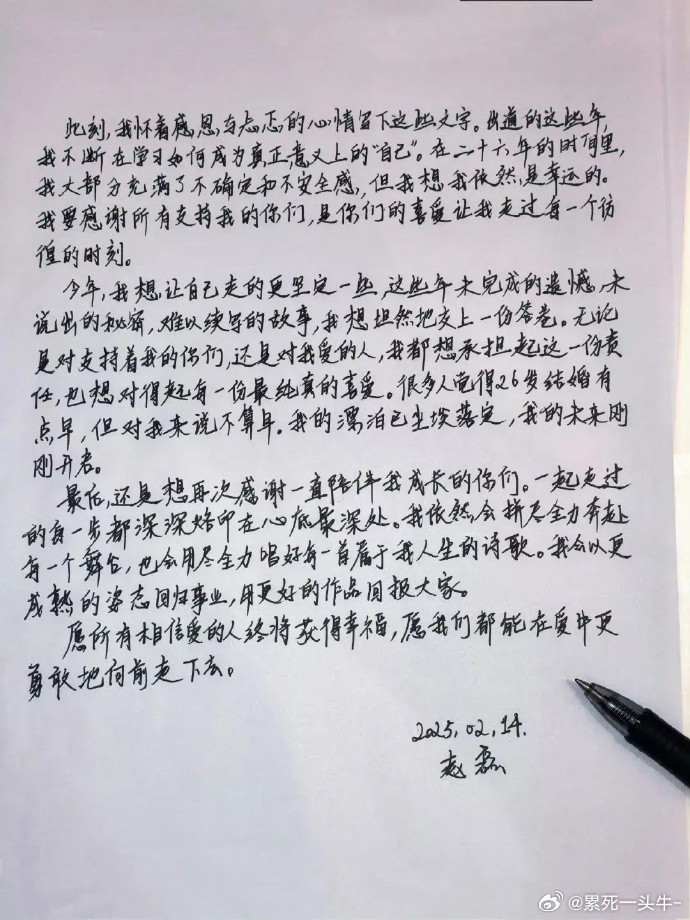 此刻,我怀着感恩与忐忑的心情留下这些文字。出道的这些年,
我不断在学习如何成为真正意义上的"自己"。在二十六年的时间里,
我大部分充满了不确定和不安全感,但我想我依然是幸运的。
我要感谢所有支持我的你们,是你们的喜爱让我走过每一个彷
徨的时刻。
今年,我想让自己走的更坚定一些,这些年未完成的遗憾,未
说出的秘密,难以续写的故事,我想坦然地交上一份答卷。无论
是对支持着我的你们,还是对我爱的人,我都想承担起这一份责
任,也想对得起每一份最纯真的喜爱。很多人觉得26岁结婚有
点早,但对我来说不算早。我的漂泊已尘埃落定,我的未来刚
刚开启。
最后,还是想再次感谢一直陪伴我成长的你们。一起走过
的每一步都深深烙印在心底最深处。我依然会拼尽全力奔赴
每一个舞台,也会用尽全力唱好每一首属于我人生的诗歌。我会以更
成熟的姿态回归事业,用更好的作品回报大家。
愿所有相信爱的人终将获得幸福,愿我们都能在爱中更
勇敢地向前走下去。
2025.02.14.
赵磊
@累死一头牛-